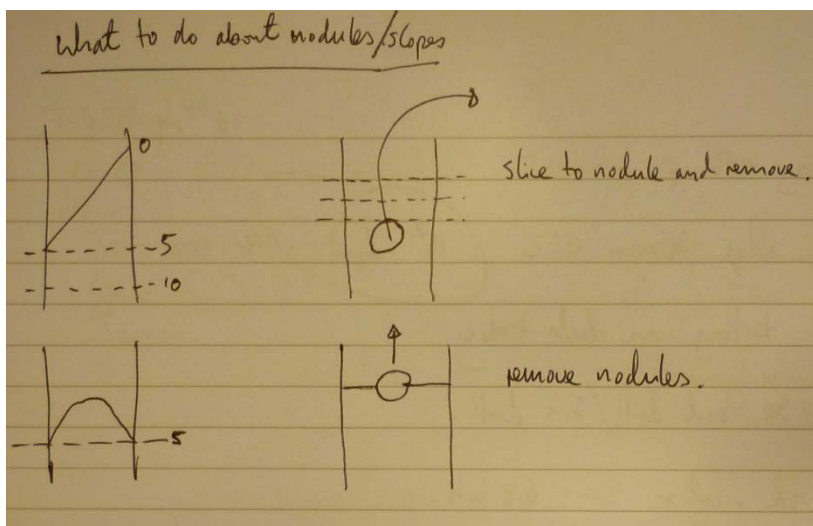 what to do about nodules/slopes
0
slice to nodule and remove.
5
10
remove nodules.
5